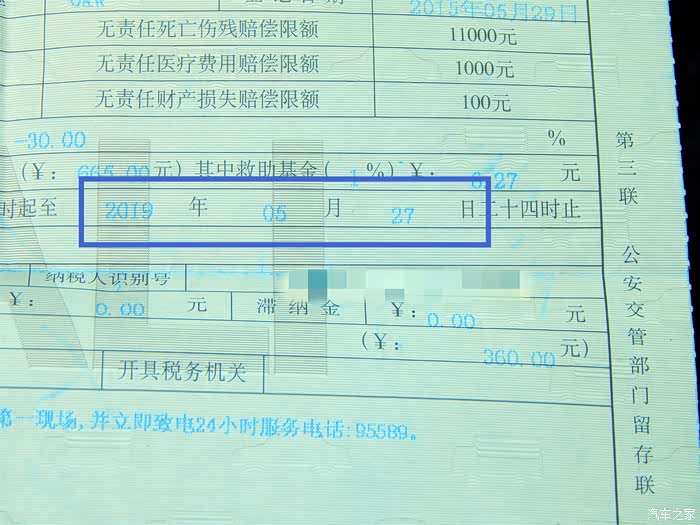 2015年05月29日
无责任死亡伤残赔偿限额 11000元
无责任医疗费用赔偿限额 1000元
无责任财产损失赔偿限额 100元
-30.00 %
(¥: 665.00元) 其中救助基金( 1 %) ¥: 6.27 元
时起至 2019 年 05 月 27 日二十四时止
纳税人识别号
¥: 0.00 元 滞纳金 ¥: 0.00 元
(¥: 360.00 元)
开具税务机关
第一现场,并立即致电24小时服务电话:95589。
第三联 公安交管部门留存联
汽车之家